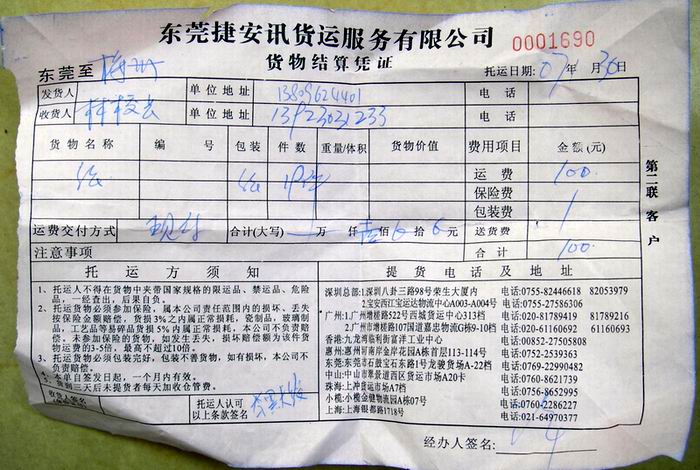 东莞捷安讯货运服务有限公司
0001690
货物结算凭证
东莞至 梅州
托运日期: 07年 月30日
发货人 单位地址 13809624401 电话
收货人 单位地址 13923031233 电话
货物名称 编号 包装 件数 重量/体积 货物价值 费用项目 金额(元)
运费 100.
保险费
包装费
送货费
合计 100.
运费交付方式 现付 合计(大写) 万 仟 壹佰 拾 元
第二联 客户
注意事项
托运方须知
1、托运人不得在货物中夹带国家规格的限运品、禁运品、危险
品,一经查出,后果自负。
2、托运货物必须参加保险,属本公司责任范围内的损坏、丢失
按保险金额赔偿,货损3%之内属正常损耗,瓷制品,玻璃制
品,工艺品等易碎品货损5%内属正常损耗,本公司不负责赔
偿。未参加保险的货物,如发生丢失,损坏赔偿额为该件货
物运费的3-5倍,最高不超过10倍。
3、托运货物必须包装完好,包装不善货物,如有损坏,本公司不
负责赔偿。
4、本单自签发日起,一个月内有效。
5、货到三天后未提货者每天加收仓管费。
收货人签名
托运人认可
以上条款签名
提货电话及地址
深圳总部:1.深圳八卦三路98号荣生大厦内 电话:0755-82446618 82053979
2.宝安西江宝运达物流中心A003-A004号 电话:0755-27586306
广州:1.广州市增槎路522号西城货运中心313档 电话:020-81789419 81789216
2.广州市增槎路107国道嘉忠物流G栋9-10档 电话:020-61160692 61160693
香港:九龙海临利街富洋工业中心 电话:00852-27505808
惠州:惠州可南岸金岸花园A栋首层113-114号 电话:0752-2539363
东莞:东莞市石鼓宝石东路1号龙骏货场A-22档 电话:0769-22990482
中山:中山市翠景道西区货运市场A20卡 电话:0760-8621739
珠海:上冲货运市场A7档 电话:0756-8652995
小榄:小榄金健物流园A栋07号 电话:0760-2286227
上海:上海银都路1718号 电话:021-64970377
经办人签名: